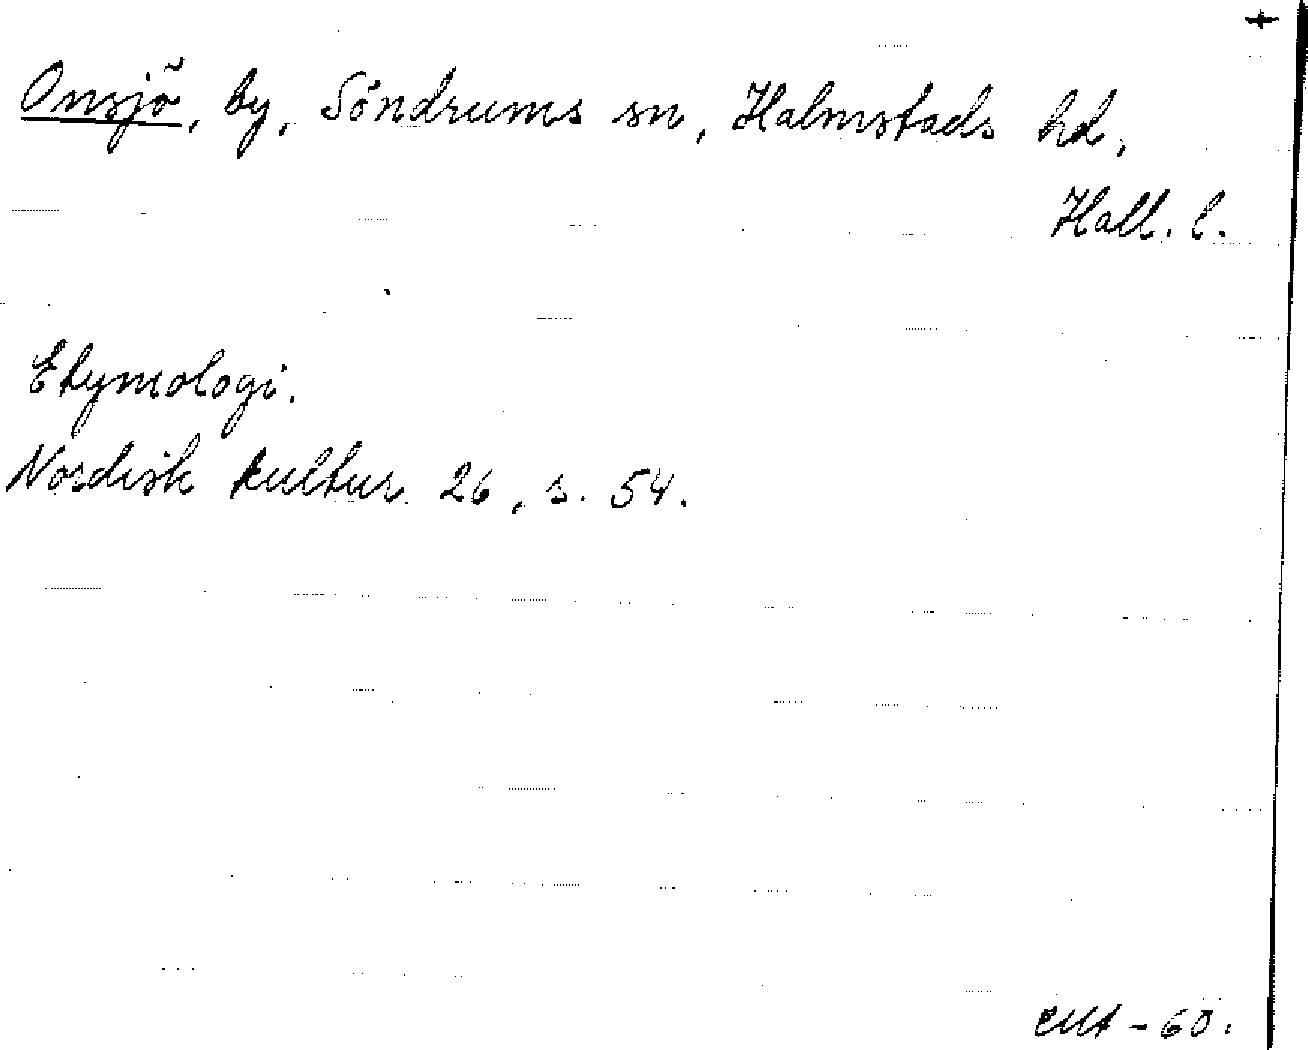 +
Onsjö, by, Söndrums sn, Halmstads hd,
Hall. l.
Etymologi.
Nordisk kultur 26, s. 54.
-60.